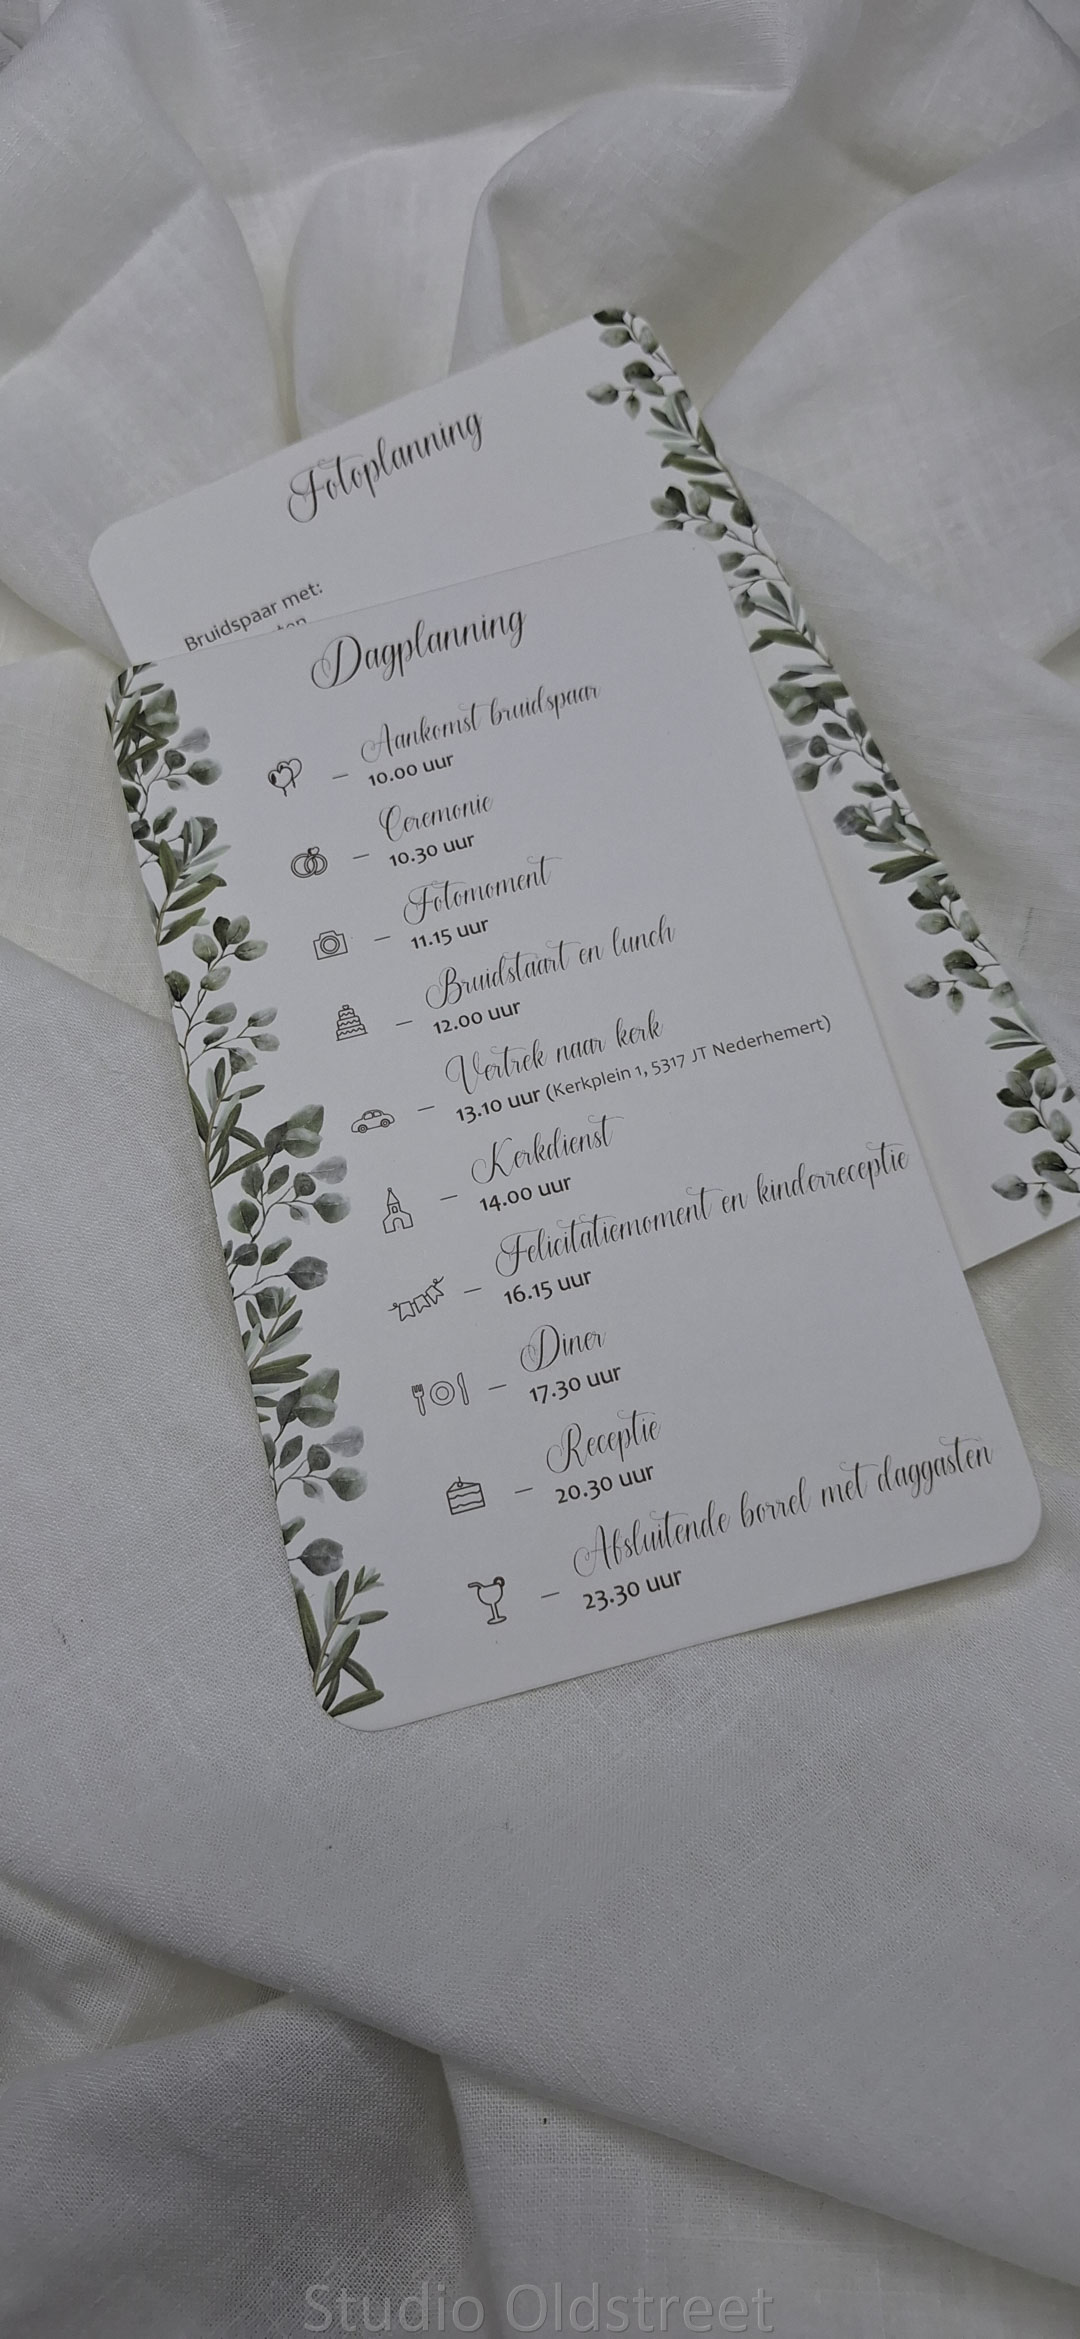 Fotoplanning
Bruidspaar met:
Dagplanning
Aankomst bruidspaar
– 10.00 uur
Ceremonie
– 10.30 uur
Fotomoment
– 11.15 uur
Bruidstaart en lunch
– 12.00 uur
Vertrek naar kerk
– 13.10 uur (Kerkplein 1, 5317 JT Nederhemert)
Kerkdienst
– 14.00 uur
Felicitatiemoment en kinderreceptie
– 16.15 uur
Diner
– 17.30 uur
Receptie
– 20.30 uur
Afsluitende borrel met daggasten
– 23.30 uur
Studio Oldstreet